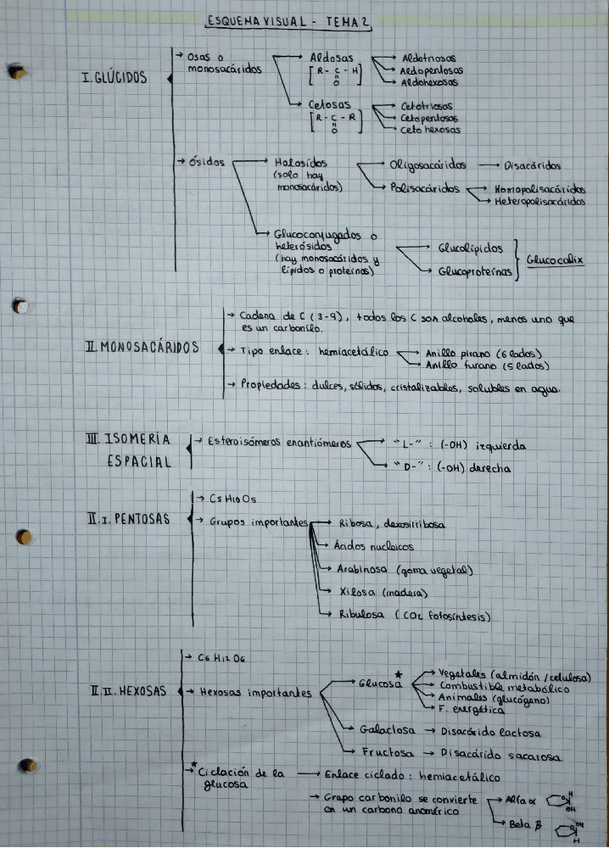 ESQUEMA VISUAL - TEMA 2
I. GLÚCIDOS
→ Osas o
monosacáridos
→ Aldosas
[R - C - H]
O
→ Aldotriosas
→ Aldopentosas
→ Aldohexosas
→ Cetosas
[R - C - R]
O
→ Cetotriosas
→ Cetopentosas
→ Cetohexosas
→ Ósidos
→ Holosídos
(solo hay
monosacáridos)
→ Oligosacáridos → Disacáridos
→ Polisacáridos
→ Homopolisacáridos
→ Heteropolisacáridos
→ Glucoconjugados o
heterósidos
(hay monosacáridos y
lípidos o proteínas)
→ Glucolípidos
→ Glucoproteínas
Glucocalix
II. MONOSACÁRIDOS
→ Cadena de C (3-9), todos los C son alcoholes, menos uno que
es un carbonilo.
→ Tipo enlace: hemiacetálico
→ Anillo pirano (6 lados)
→ Anillo furano (5 lados)
→ Propiedades: dulces, sólidos, cristalizables, solubles en agua.
III. ISOMERÍA
ESPACIAL
→ Esteroisómeros enantiómeros
→ "L-" : (-OH) izquierda
→ "D-" : (-OH) derecha
II.I. PENTOSAS
→ C5 H10 O5
→ Grupos importantes
→ Ribosa, dexosirribosa
→ Ácidos nucleicos
→ Arabinosa (goma vegetal)
→ Xilosa (madera)
→ Ribulosa (CO2 fotosíntesis)
II.II. HEXOSAS
→ C6 H12 O6
→ Hexosas importantes
→ Glucosa *
→ Vegetales (almidón / celulosa)
→ Combustible metabólico
→ Animales (glucógeno)
→ F. energética
→ Galactosa → Disacárido lactosa
→ Fructosa → Disacárido sacarosa
→ * Ciclación de la
glucosa
→ Enlace ciclado: hemiacetálico
→ Grupo carbonilo se convierte
en un carbono anomérico
→ Alfa α
H
OH
→ Beta β
OH
H